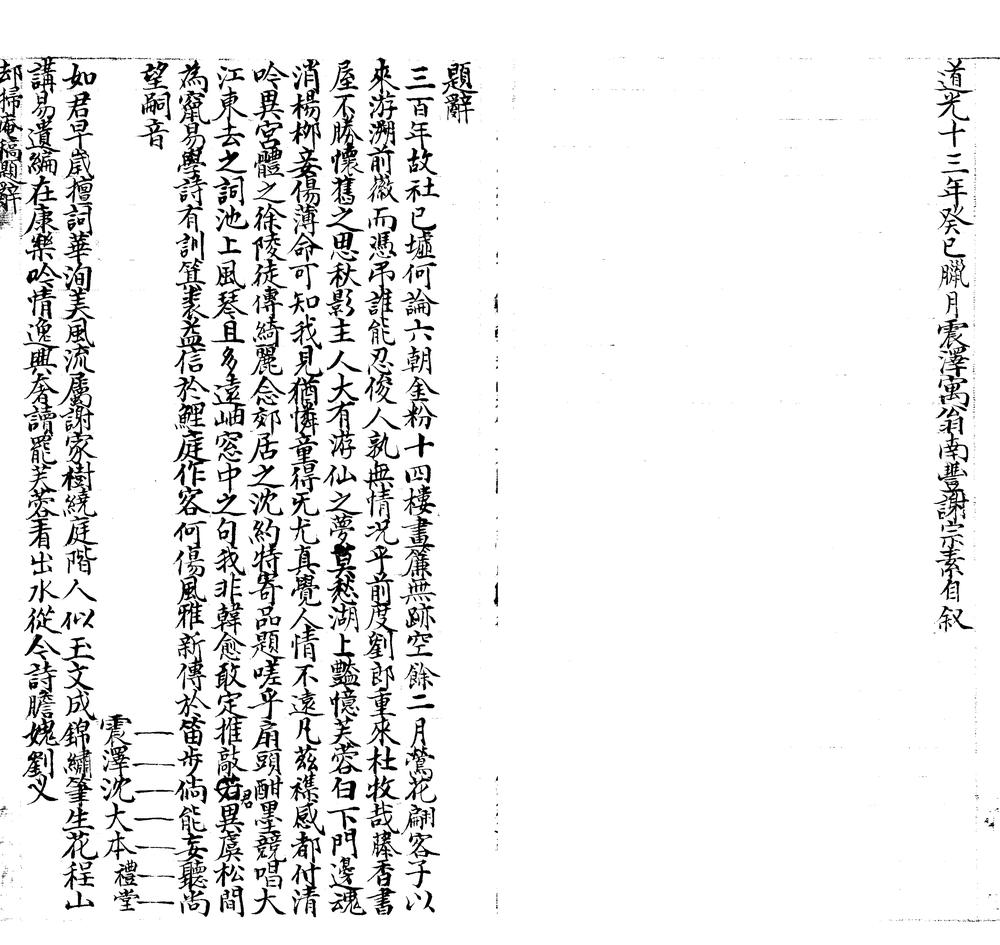 道光十三年癸巳臘月震澤寓翁南豐謝宗素自叙
題辭
三百年故社已墟何論六朝金粉十四樓畫簾無跡空餘二月鶯花翩客子以
來游溯前徽而憑弔誰能忍俊人孰無情况乎前度劉郎重來杜牧哉牋香書
屋不勝懷舊之思秋影主人大有游仙之夢莫愁湖上豔憶芙蓉白下門邊魂
消楊柳妾傷薄命可知我見猶憐童得旡尤真覺人情不遠凡茲襍感都付清
吟異宮體之徐陵徒傳綺麗念郊居之沈約特寄品題嗟乎扇頭酣墨競唱大
江東去之詞池上風琴且多遠岫窓中之句我非韓愈敢定推敲君異虞松間
為竄易學詩有訓箕裘益信於鯉庭作客何傷風雅新傳於笛步倘能妄聽尚
望嗣音
震澤沈大本禮堂
如君早歲擅詞華洵美風流屬謝家樹繞庭階人似玉文成錦繡筆生花程山
講易遺編在康樂吟情逸興奢讀罷芙蓉看出水從今詩膽媿劉乂
却掃庵稿題辭